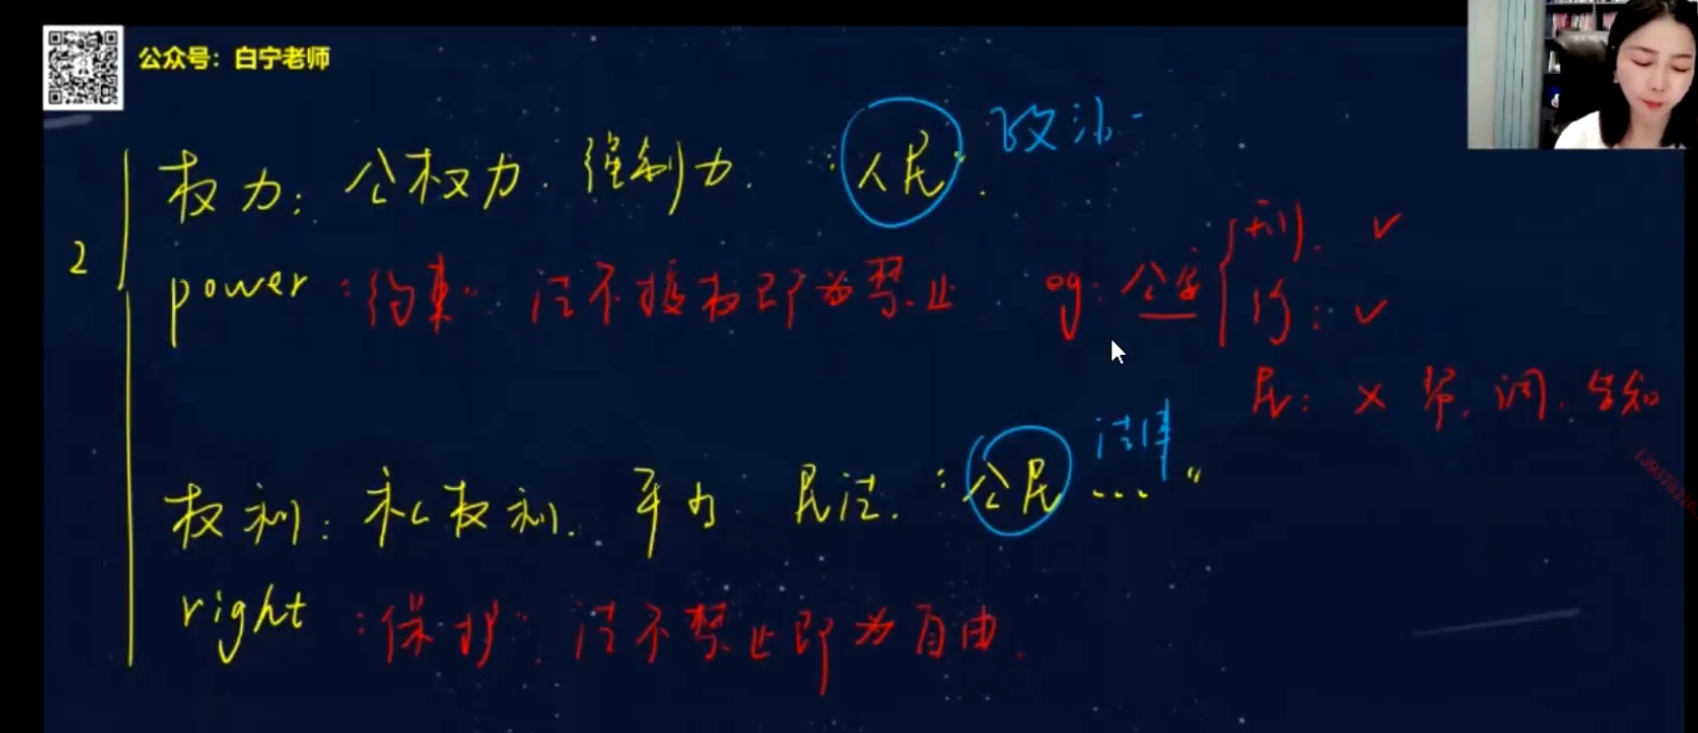 公众号：白宁老师
权力：公权力. 强制力. “人民”. 政治
2
power “约束” 法不授权即为禁止 eg: 公安 { 刑. ✓
行: ✓
民: × 帮. 调. 告知
权利: 私权利. 平的 民法. “公民 ...” 法律
right “保护” 法不禁止即为自由.